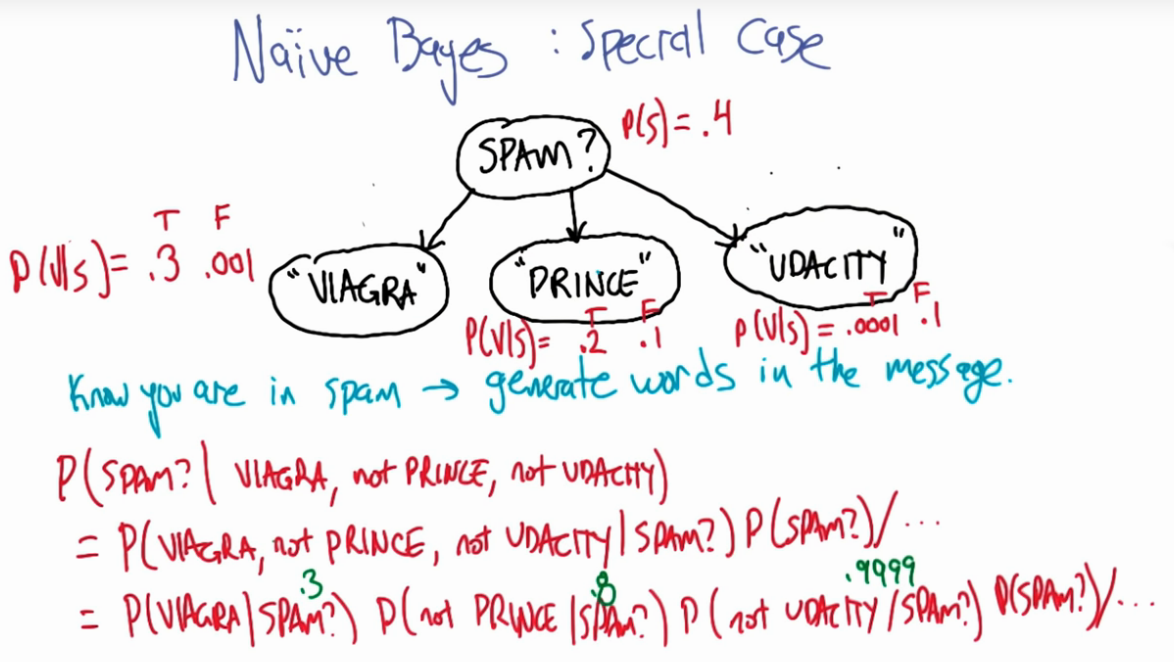 Naïve Bayes : Special Case
SPAM?
P(s) = .4
T F
P(V|s) = .3 .001
"VIAGRA"
"PRINCE"
"UDACITY"
T F
P(V|s) = .2 .1
T F
P(V|s) = .0001 .1
Know you are in spam → generate words in the message.
P(SPAM? | VIAGRA, not PRINCE, not UDACITY)
= P(VIAGRA, not PRINCE, not UDACITY | SPAM?) P(SPAM?) / ...
.3 .8 .9999
= P(VIAGRA | SPAM?) P(not PRINCE | SPAM?) P(not UDACITY / SPAM?) P(SPAM?) / ...